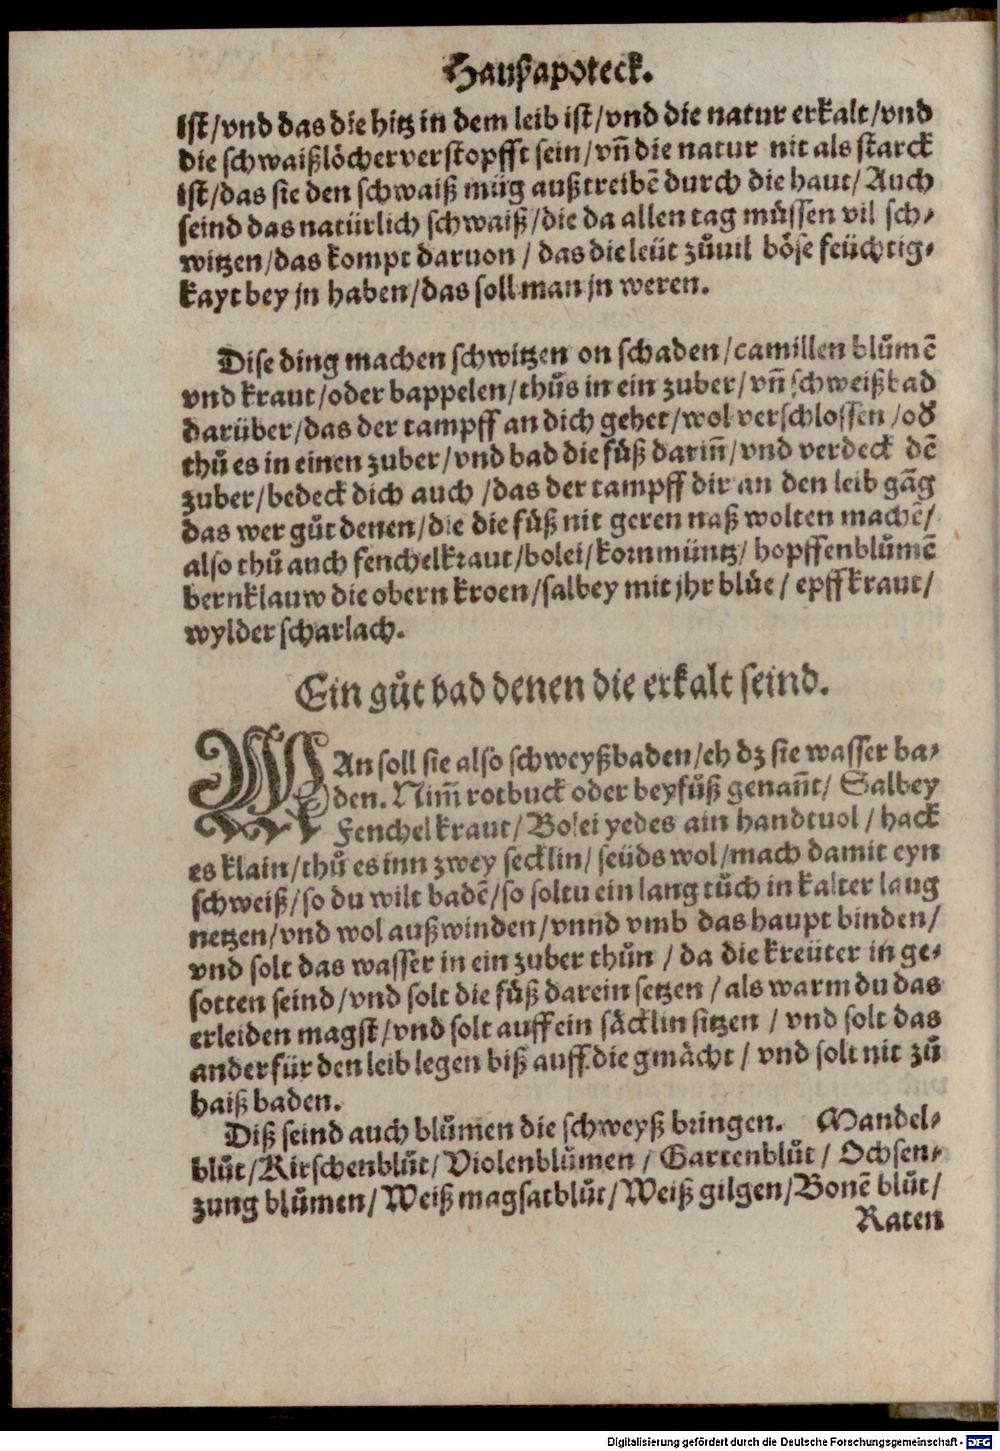 Haußapoteck.
ist/vnd das die hitz in dem leib ist/vnd die natur erkalt/vnd
die schwaißlöcher verstopfft sein/vn̄ die natur nit als starck
ist/das sie den schwaiß müg außtreibē durch die haut/Auch
seind das natürlich schwaiß/die da allen tag müssen vil sch⸗
witzen/das kompt daruon/das die leüt zůuil böse feüchtig⸗
kayt bey jn haben/das soll man jn weren.
Dise ding machen schwitzen on schaden/camillen blůmē
vnd kraut/oder bappelen/thůs in ein zuber/vn̄ schweißbad
darüber/das der tampff an dich gehet/wol verschlossen/od̕
thů es in einen zuber/vnd bad die füß darin̄/vnd verdeck dē
zuber/bedeck dich auch/das der tampff dir an den leib gāg
das wer gůt denen/die die füß nit geren naß wolten machē/
also thů auch fenchelkraut/bolei/kornmüntz/hopffenblůmē
bernklauw die obern kroen/salbey mit jhr blüe/epffkraut/
wylder scharlach.
Ein gůt bad denen die erkalt seind.
MAn soll sie also schweyßbaden/eh dz sie wasser ba⸗
den. Nim̄ rotbuck oder beyfůß genan̄t/Salbey
Fenchelkraut/Bolei yedes ain handtuol/hack
es klain/thů es inn zwey secklin/seüds wol/mach damit eyn
schweiß/so du wilt badē/so soltu ein lang tůch in kalter laug
netzen/vnd wol außwinden/vnnd vmb das haupt binden/
vnd solt das wasser in ein zuber thůn/da die kreüter in ge⸗
sotten seind/vnd solt die füß darein setzen/als warm du das
erleiden magst/vnd solt auff ein säcklin sitzen/vnd solt das
ander für den leib legen biß auff die gmächt/vnd solt nit zů
haiß baden.
Diß seind auch blůmen die schweyß bringen. Mandel⸗
blůt/Kirschenblůt/Violenblůmen/Gartenblůt/Ochsen⸗
zung blůmen/Weiß magsatblůt/Weiß gilgen/Bonē blůt/
Raten
Digitalisierung gefördert durch die Deutsche Forschungsgemeinschaft - DFG